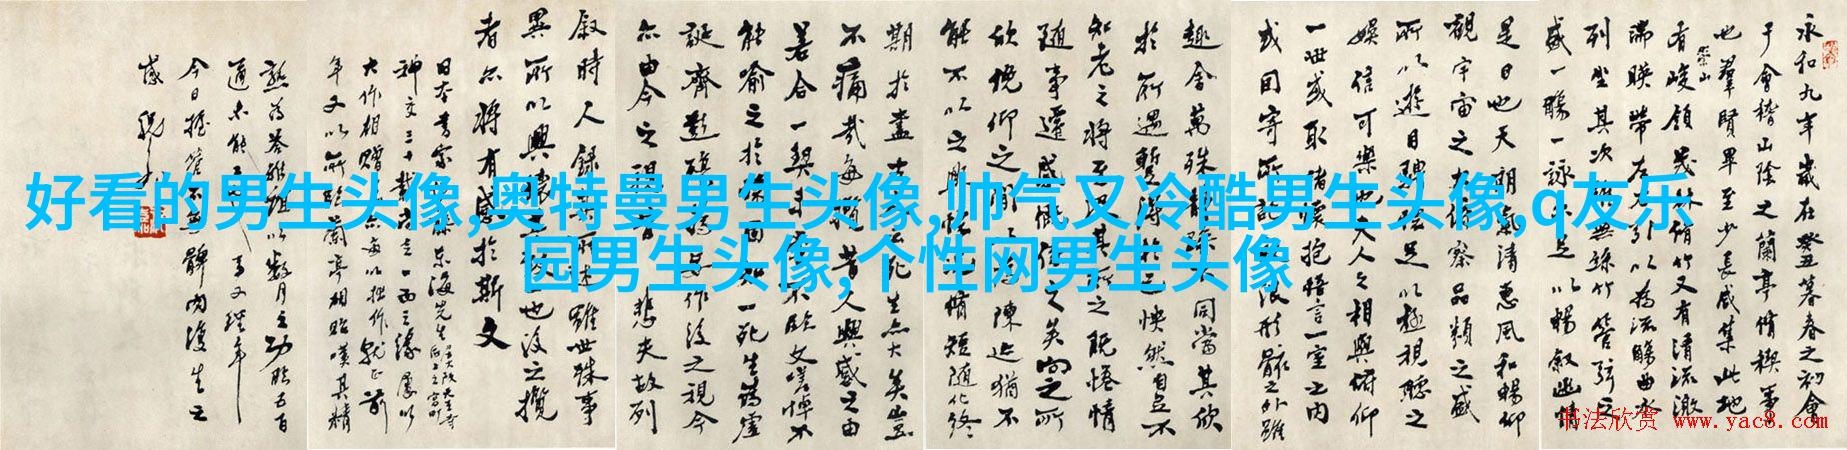 好看的男生头像,奥特曼男生头像,帅气又冷酷男生头像,q友乐
园男生头像,个性网男生头像
永和九年歲在癸丑暮春之初會
于會稽山陰之蘭亭脩稧事
也群賢畢至少長咸集此地
崇山
有峻領茂林脩竹又有清流激
湍暎帶左右引以為流觴曲水
列坐其次雖無絲竹管弦之
盛一觴一詠亦足以暢叙幽情
是日也天朗氣清惠風和暢仰
觀宇宙之大俯察品類之盛
所以遊目騁懷足以極視聽之
娛信可樂也夫人之相與俯仰
一世或取諸懷抱悟言一室之內
或因寄所託放浪形骸之外雖
趣舍萬殊靜躁不同當其欣
於所遇蹔得於己怏然自足不
知老之將至及其所之既惓情
隨事遷感慨係之矣向之所
欣俛仰之間以為陳迹猶不
能不以之興懷況脩短隨化終
期於盡古人云死生亦大矣豈
不痛哉每攬昔人興感之由
若合一契未嘗不臨文嗟悼不
能喻之於懷固知一死生為虛
誕齊彭殤為妄作後之視今
亦由今之視昔悲夫故列
叙時人錄其所述雖世殊事
異所以興懷其致一也後之攬
者亦將有感於斯文
日本書宗東海先生
神交三十載
大作相贈以拙作就正前
年又以所臨蘭亭相貽嘆其精
今日握管
书法欣赏 www.yac8.com